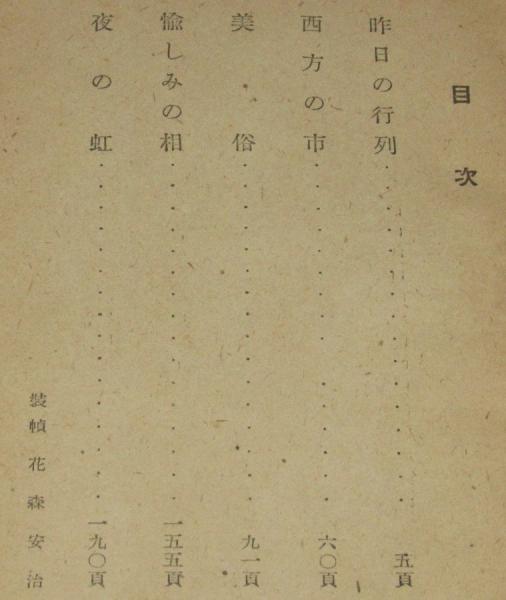 目次
昨日の行列・・・・・・・・・・・・・・・・五頁
西方の市・・・・・・・・・・・・・・・・六〇頁
美俗・・・・・・・・・・・・・・・・九一頁
愉しみの相・・・・・・・・・・・・・・・・一五五頁
夜の虹・・・・・・・・・・・・・・・・一九〇頁
裝幀 花森安治